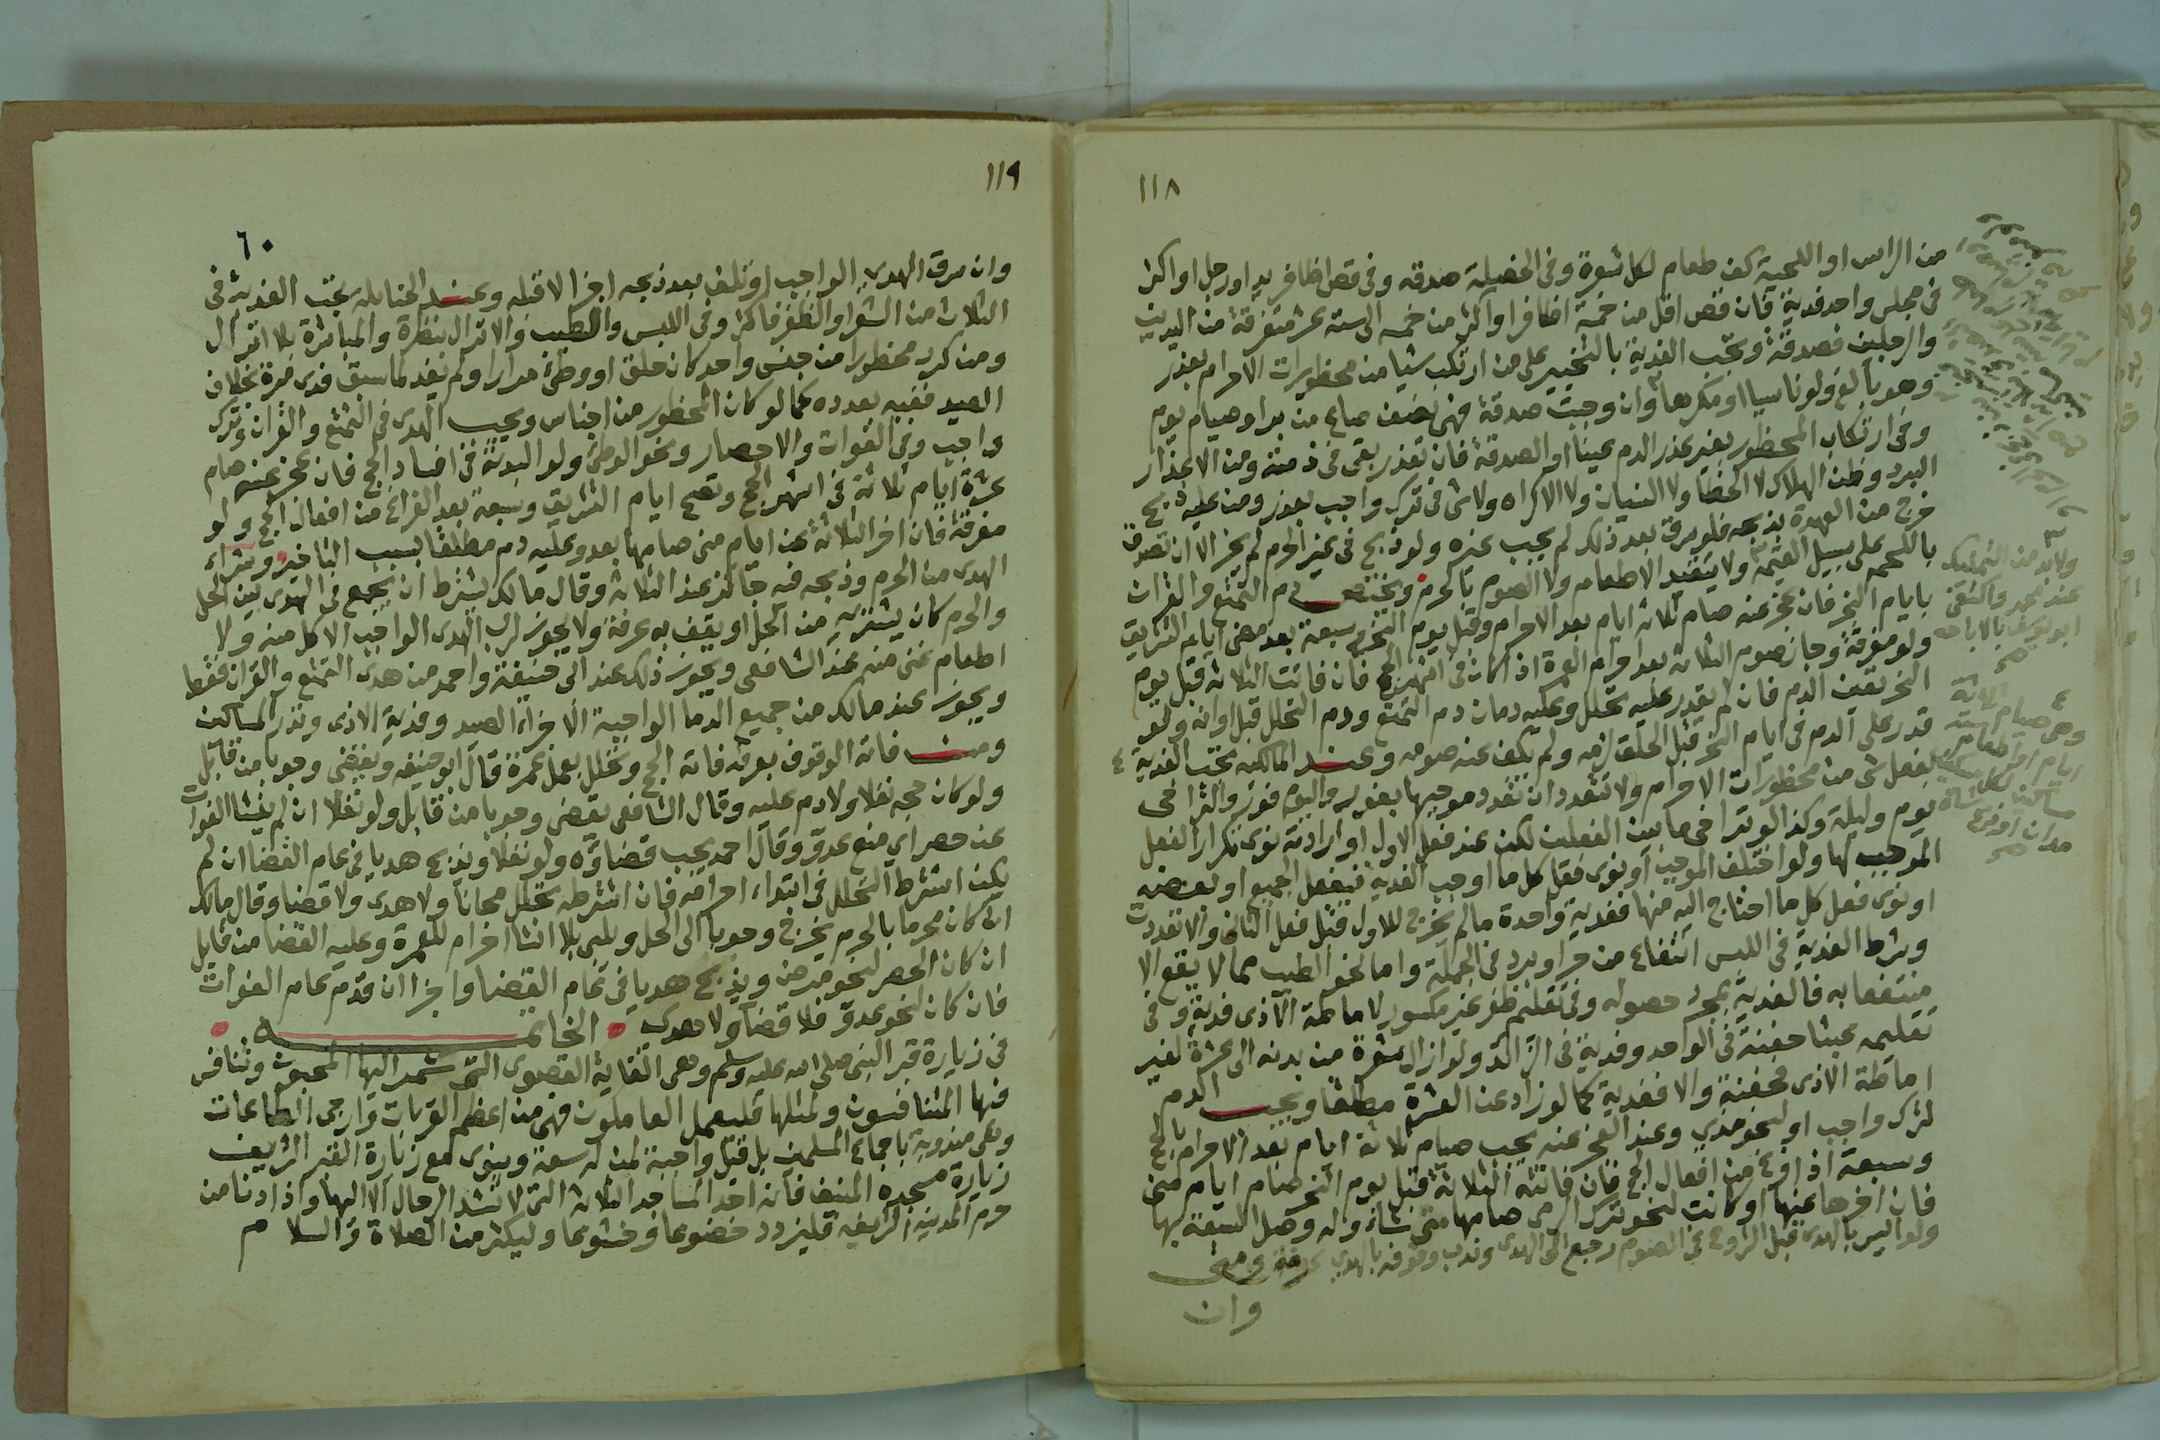 ١١٨
من الراس او اللحية كف طعام لكل شعرة وفى الخصيلة صدقه وفى قص اظافر يد او رجل او اكثر
فى مجلس واحد فدية فان قص اقل من خمسة اظافر او اكثر من خمسه الى سته عشر متفرقة من اليدين
والرجلين فصدقة وتجب الفدية بالتخيير على من ارتكب شيا من محظورات الاحرام بعذر
وهو بالغ ولو ناسيا او مكرها وان وجبت صدقة فهى نصف صاع من بر او صيام يوم
وفى ارتكاب المحظور بغير عذر الدم عينا او الصدقة فان تعذر بقى فى ذمته ومن الاعذار
البرد وظن الهلاك لا الخطأ ولا النسيان ولا الاكراه ولا شى فى ترك واجب بعذر ومن عليه ذبح
خرج من العهدة بذبحه فلو سرق بعد ذلك لم يجب غيره ولو ذبح فى غير الحرم لم يجز الا ان تصدق
باللحم على سبيل القيمة ولا يتقيد الاطعام ولا الصوم بالحرم ويختص دم التمتع والقران
بايام النحر فان عجز عنه صام ثلاثه ايام بعد الاحرام وقبل يوم النحر وسبعة بعد مضى ايام التشريق
ولو مفرقة وجاز صوم الثلاثه بعد احرام العمرة اذ كان فى اشهر الحج فان فاتت الثلاثه قبل يوم
النحر تعين الدم فان لم يقدر عليه تحلل وعليه دمان دم التمتع ودم التحلل قبل اوانه ولو
قدر على الدم فى ايام النحر قبل الحلق لزمه ولم يكف عنه صومه وعند المالكيه تجب الفدية ٤
بفعل شى من محظورات الاحرام ولا تتعدد ان تعدد موجبها بفور واليوم فور والتراخى
يوم وليلة وكذا لو تراخى ما بين الفعلين لكن عند فعل الاول او ارادته نوى تكرار الفعل
الموجب لها ولو اختلف الموجب او نوى فعل كل ما اوجب الفدية ففعل الجميع او بعضه
او نوى فعل كل ما احتاج اليه منها ففدية واحدة ما لم يخرج للاول قبل فعل الثانى والا تعددت
وشرط الفدية فى اللبس انتفاع من حر او برد فى الجملة واما نحو الطيب مما لا يقع الا
منتفعا به فالفدية بمجرد حصوله وفى تقليم ظفر غير مكسور لاماطة الاذى فدية وفى
تقليمه عبثا حفنة فى الواحد وفدية فى الزائد ولو ازال شعرة من بدنه الى عشرة لغير
اماطة الاذى فحفنة والا ففدية كما لو زاد عن العشرة مطلقا ويجب الدم
لترك واجب او لنحو مذي وعند العجز عنه يجب صيام ثلاثة ايام بعد الاحرام بالحج
وسبعة اذا فرغ من افعال الحج فان فاتته الثلاثة قبل يوم النحر صام ايام منى
فان اخرها عنها او كانت لنحو ترك الرمى صامها متى شاء وله وصل السبعة بها
ولو ايسر بالهدى قبل الشروع فى الصوم رجع الى الهدى وندب وقوفه بالهدى بعرفة ومنى
وان
٣
ولا بد من التمليك
عند محمد واكتفى
ابو يوسف بالاباحه
٤
وهى صيام ثلاثة
ايام او اطعام ستة
مساكين لكل مسكين
مدان او ذبح شاة
١١٩
٦٠
وان سرق الهدى الواجب او تلف بعد ذبحه اجزا لا قبله وعند الحنابله تجب الفدية فى
الثلاث من الشعر او الظفر فاكثر وفى اللبس والطيب والانزال بنظرة والمباشرة بلا انزال
ومن كرر محظورا من جنس واحد كان حلق او وطئ مرارا ولم يفد لما سبق فدى مرة بخلاف
الصيد ففيه بعدده كما لو كان المحظور من اجناس ويجب الهدى فى التمتع والقران وترك
واجب وفى الفوات والاحصار ونحو الوطئ ولو البدنة فى افساد الحج فان عجز عنه صام
عشرة ايام ثلاثة فى اشهر الحج وتصح ايام التشريق وسبعة بعد الفراغ من افعال الحج ولو
مفرقة فان اخر الثلاثة عن ايام منى صامها بعد وعليه دم مطلقا لسبب التاخير وشراء
الهدى من الحرم وذبحه فيه جائز عند الثلاثه وقال مالك يشترط ان يجمع فى الهدى بين الحل
والحرم كان يشتريه من الحل او يقف به عرفة ولا يجوز لرب الهدى الواجب الاكل منه ولا
اطعام غنى منه عند الشافعى ويجوز ذلك عند ابى حنيفة واحمد من هدى التمتع والقران فقط
ويجوز عند مالك من جميع الدما الواجبة الا جزاء الصيد وفدية الاذى ونذر المساكين
ومن فاته الوقوف بعرفه فاته الحج وتحلل بعمل عمرة قال ابو حنيفه ويقضى وجوبا من قابل
ولو كان حجه نفلا ولا دم عليه وقال الشافعى يقضى وجوبا من قابل ولو نفلا ان لم ينشا الفوات
عن حصر اي منع عدو وقال احمد يجب قضاؤه ولو نفلا ويذبح هديا فى عام القضا ان لم
يكن اشترط التحلل فى ابتداء احرامه فان اشترطه تحلل مجانا ولا هدى ولا قضا وقال مالك
ان كان محرما بالحرم يخرج وجوبا الى الحل ويلبى بلا انشا احرام للعمرة وعليه القضا من قابل
ان كان الحصر لنحو مرض ويذبح هديا فى عام القضا واجزا ان قدم عام الفوات
فان كان لنحو عدو فلا قضا ولا هدى الخاتمـــــه
فى زيارة قبر النبى صلى الله عليه وسلم وهى الغاية القصوى التى شمر اليها المحبون وتنافس
فيها المتنافسون ولمثلها فليعمل العاملون فهى من اعظم القربات وارجى الطاعات
وهى مندوبة باجماع المسلمين بل قيل واجبة لمن له سعة وينوى مع زيارة القبر الشريف
زيارة مسجده المنيف فانه احد المساجد الثلاثه التى لا تشد الرحال الا اليها واذا دنا من
حرم المدينه الشريفه فليزدد خضوعا وخشوعا وليكثر من الصلاة والسلام